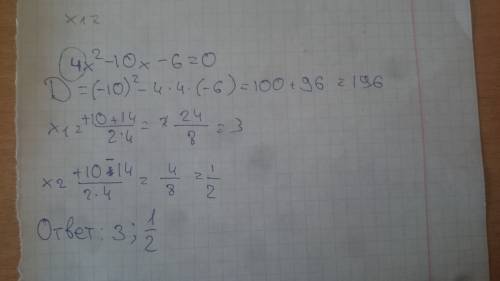 x1 2
4x²-10x-6=0
D=(-10)²-4·4·(-6)=100+96=196
x1=+10+14/2·4=24/8=3
x2 +10-14/2·4=4/8=1/2
Ответ: 3; 1/2